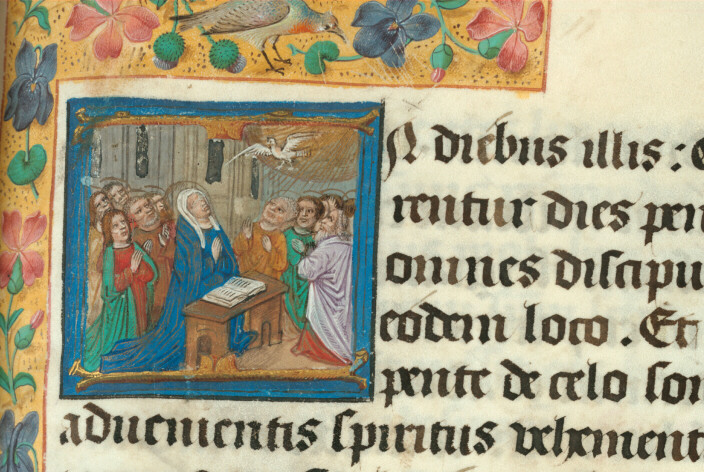 N diebus illis : C
rentur dies pen
omnes discipu
eodem loco . Et
pente de celo son
aduenientis spiritus vehement